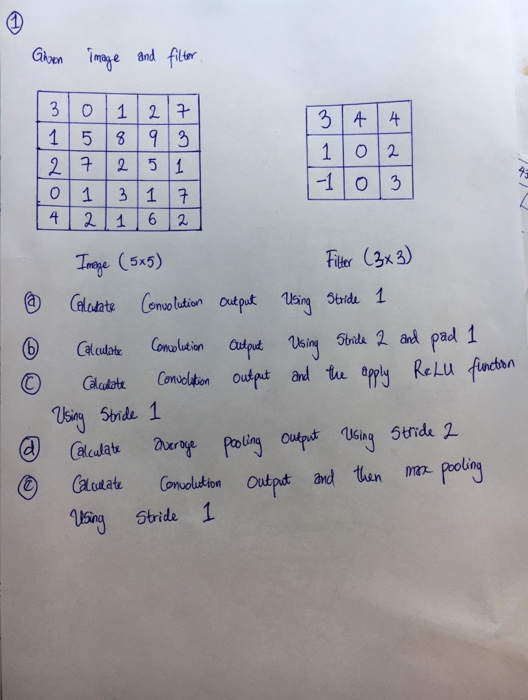 1
Given image and filter.
3 0 1 2 7
1 5 8 9 3
2 7 2 5 1
0 1 3 1 7
4 2 1 6 2
3 4 4
1 0 2
-1 0 3
Image (5x5)
Filter (3x3)
a Calculate Convolution output Using Stride 1
b Calculate Convolution output Using Stride 2 and pad 1
C Calculate Convolution output and the apply ReLU function
Using Stride 1
d Calculate average pooling output Using Stride 2
e Calculate Convolution output and then max pooling
Using Stride 1